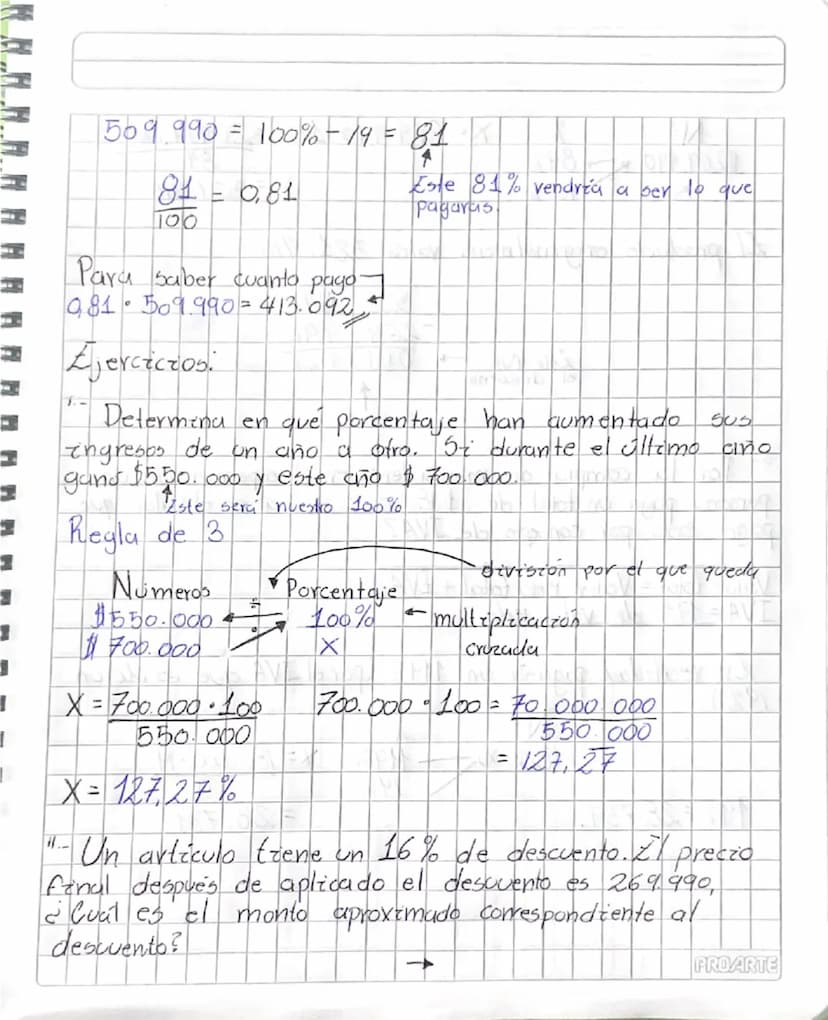 509.990 = 100% - 19 = 81
81/100 = 0,81
Este 81% vendría a ser lo que pagaras.
Para saber cuanto pago
0,81 · 509.990 = 413.092
Ejercicios:
1.- Determina en qué porcentaje han aumentado sus
ingresos de un año a otro. Si durante el último año
ganó $550.000 y este año $ 700.000.
Este será nuestro 100%
Regla de 3
división por el que queda
Números ÷ Porcentaje
$550.000 100% ← multiplicación
$ 700.000 X cruzada
X = 700.000 · 100 / 550.000
700.000 · 100 = 70.000.000 / 550.000
= 127,27
X = 127,27%
"- Un artículo tiene un 16% de descuento. El precio
final después de aplicado el descuento es 269.990,
¿Cuál es el monto aproximado correspondiente al
descuento?
→
PROARTE